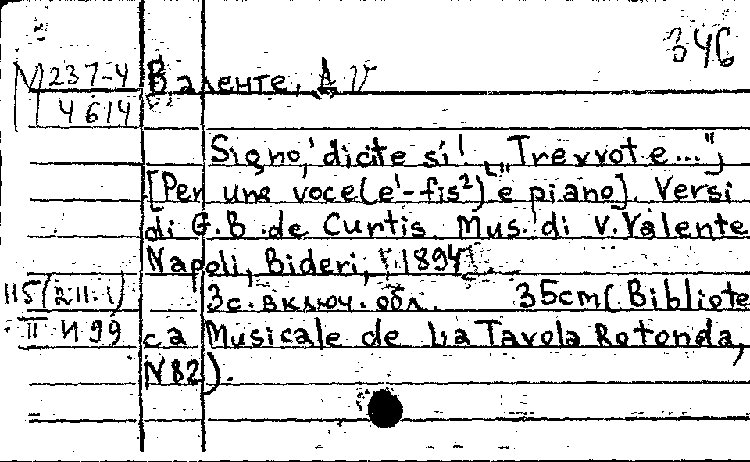 346
М 237-4 Валенте,
4614
Signo,' dicite si! „Tre vvote..."
[Per una voce (e¹-fis²) e piano]. Versi
di G.B. de Curtis Mus. di V. Valente
Napoli, Bideri, [1894].
115(2.11.1) 3с. включ. обл. 35cm (Bibliote
II и 99 ca Musicale de La Tavola Rotonda,
N 82).